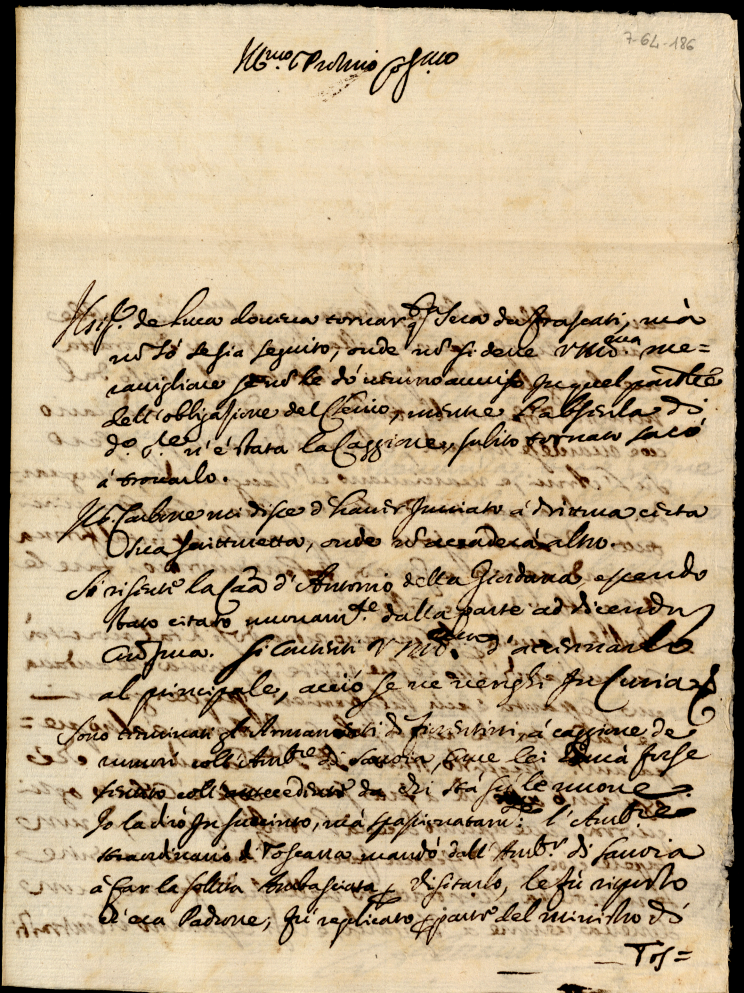 7-64-186
Ill.mo e Pron mio
Il Sig.r de Luca doveva tornar q.a sera da Frascati, mà
nõ sò se sia seguito, onde nõ si deve V.S. Ill.ma me=
ravigliare se nõ le dò veruno avviso
dell'obligazione del mentre l'absenza di
d.o n'è stata la Caggione, subito tornato sarò
à trovarlo.
Il Carbone mi disse d'haver Inviato à drittura certa
sua scritturetta, onde nõ accaderà altro.
la Cãa d'Antonio della Giordana essendo
stato citato nuovam.te dalla parte ad dicendũ
Si contenti V.S. Ill.ma d'accennarlo
al principale, acciò se ne venghi In Curia
Sono terminati gl'Armamenti di Fiorentini, à caggione de
rumori coll'Amb.re di Savoia, come lei havrà forse
sentito coll'antecedente da chi stà sù le nuove.
Io la dirò In succinto, mà spassionatam.te l'Amb.re
straordinario di Toscana mandò dall'Amb.r di Savoia
à far la solita Ambasciata p visitarlo, le fù risposto
ch'era Padrone, fù replicato p parte del ministro di
Tos=